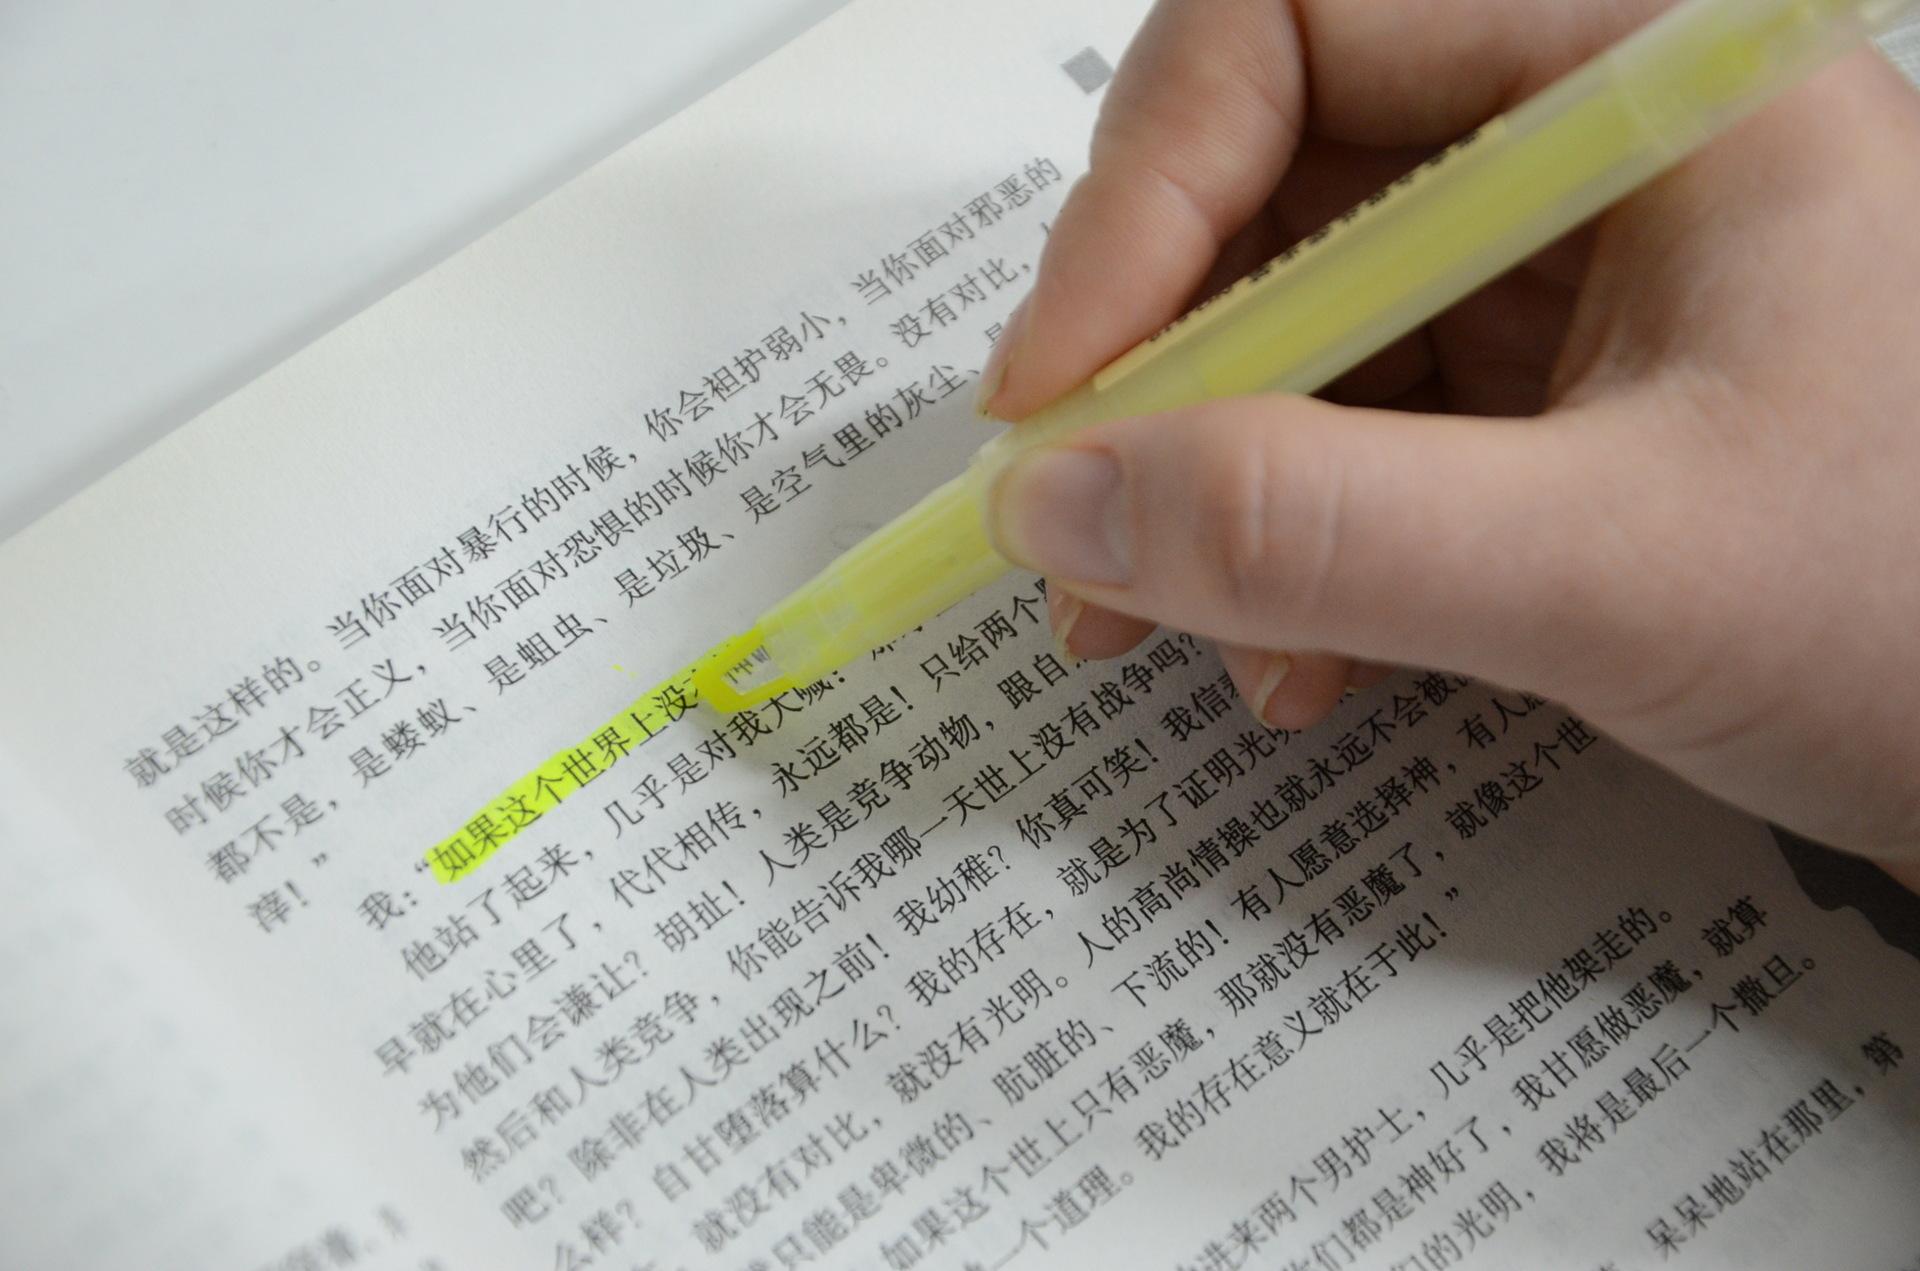 就是这样的。当你面对暴行的时候，你会袒护弱小，当你面对邪恶的
时候你才会正义，当你面对恐惧的时候你才会无畏。没有对比，
都不是，是蝼蚁、是蛆虫、是垃圾、是空气里的灰尘、是
滓！”
我：“如果这个世界上没
他站了起来，几乎是对我大喊：
早就在心里了，代代相传，永远都是！只给两个
为他们会谦让？胡扯！人类是竞争动物，跟自
然后和人类竞争，你能告诉我哪一天世上没有战争吗？
吧？除非在人类出现之前！我幼稚？你真可笑！我信
么样？自甘堕落算什么？我的存在，就是为了证明光明
就没有对比，就没有光明。人的高尚情操也就永远不会被
只能是卑微的、肮脏的、下流的！有人愿意选择神，有人愿
如果这个世上只有恶魔，那就没有恶魔了，就像这个世
一个道理。我的存在意义就在于此！”
进来两个男护士，几乎是把他架走的。
你们都是神好了，我甘愿做恶魔，就算
们的光明，我将是最后一个撒旦。
呆呆地站在那里，第